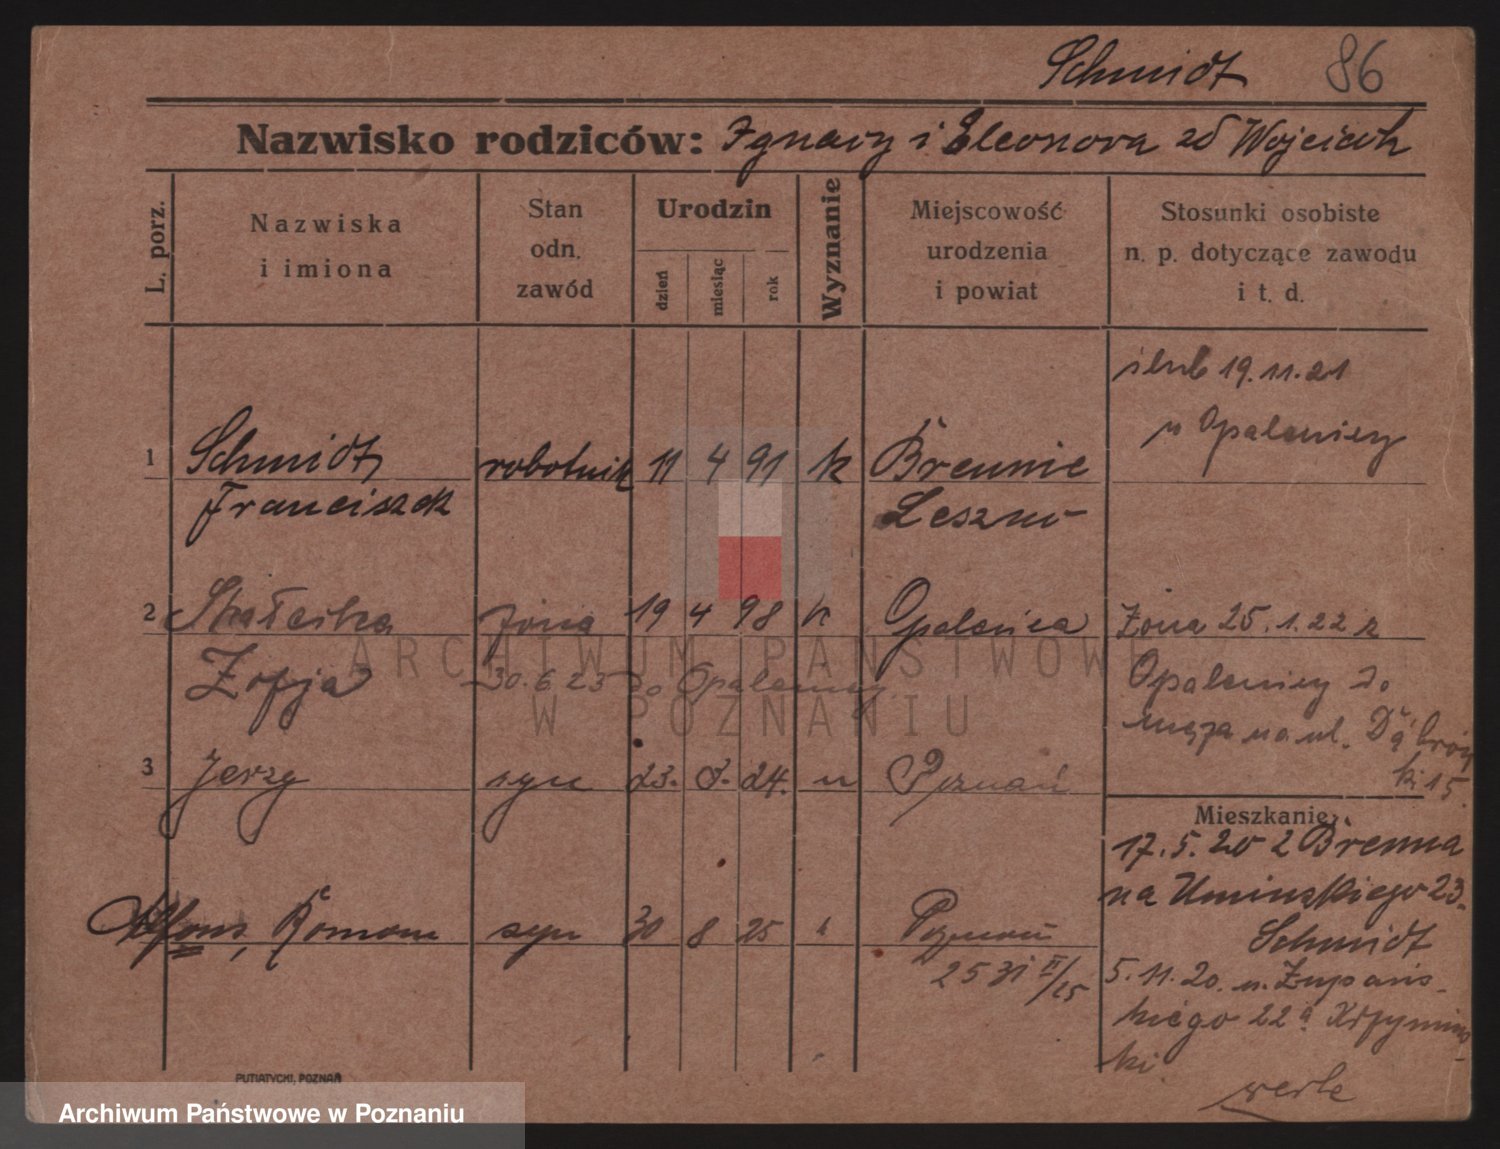 Schmidt 86
Nazwisko rodziców: Ignacy i Eleonora zd Wojciech
L. porz.
Nazwiska i imiona
Stan odn. zawód
Urodzin
dzień
miesiąc
rok
Wyznanie
Miejscowość urodzenia i powiat
Stosunki osobiste n. p. dotyczące zawodu i t. d.
ślub 19.11.21
w Opalenicy
1 Schmidt robotnik 11 4 91 k Brennie
Franciszek Leszno
2 żona 19 4 98 k Opalenica Żona 25.1.22 z
Zofja 30.6.25 do Opalenicy Opalenicy do
męża na ul. Dąbrows
ki 15.
3 Jerzy syn 23. 24. Poznań
Mieszkanie:
17.5.20 z Brenna
na Umińskiego 23.
Schmidt
Alfons, Roman syn 30 8 25 Poznań
2531 II/25
5.11.20. u. Żupańs-
kiego 22a
ki
PUTIATYCKI, POZNAŃ
ARCHIWUM PAŃSTWOWE
W POZNANIU
Archiwum Państwowe w Poznaniu